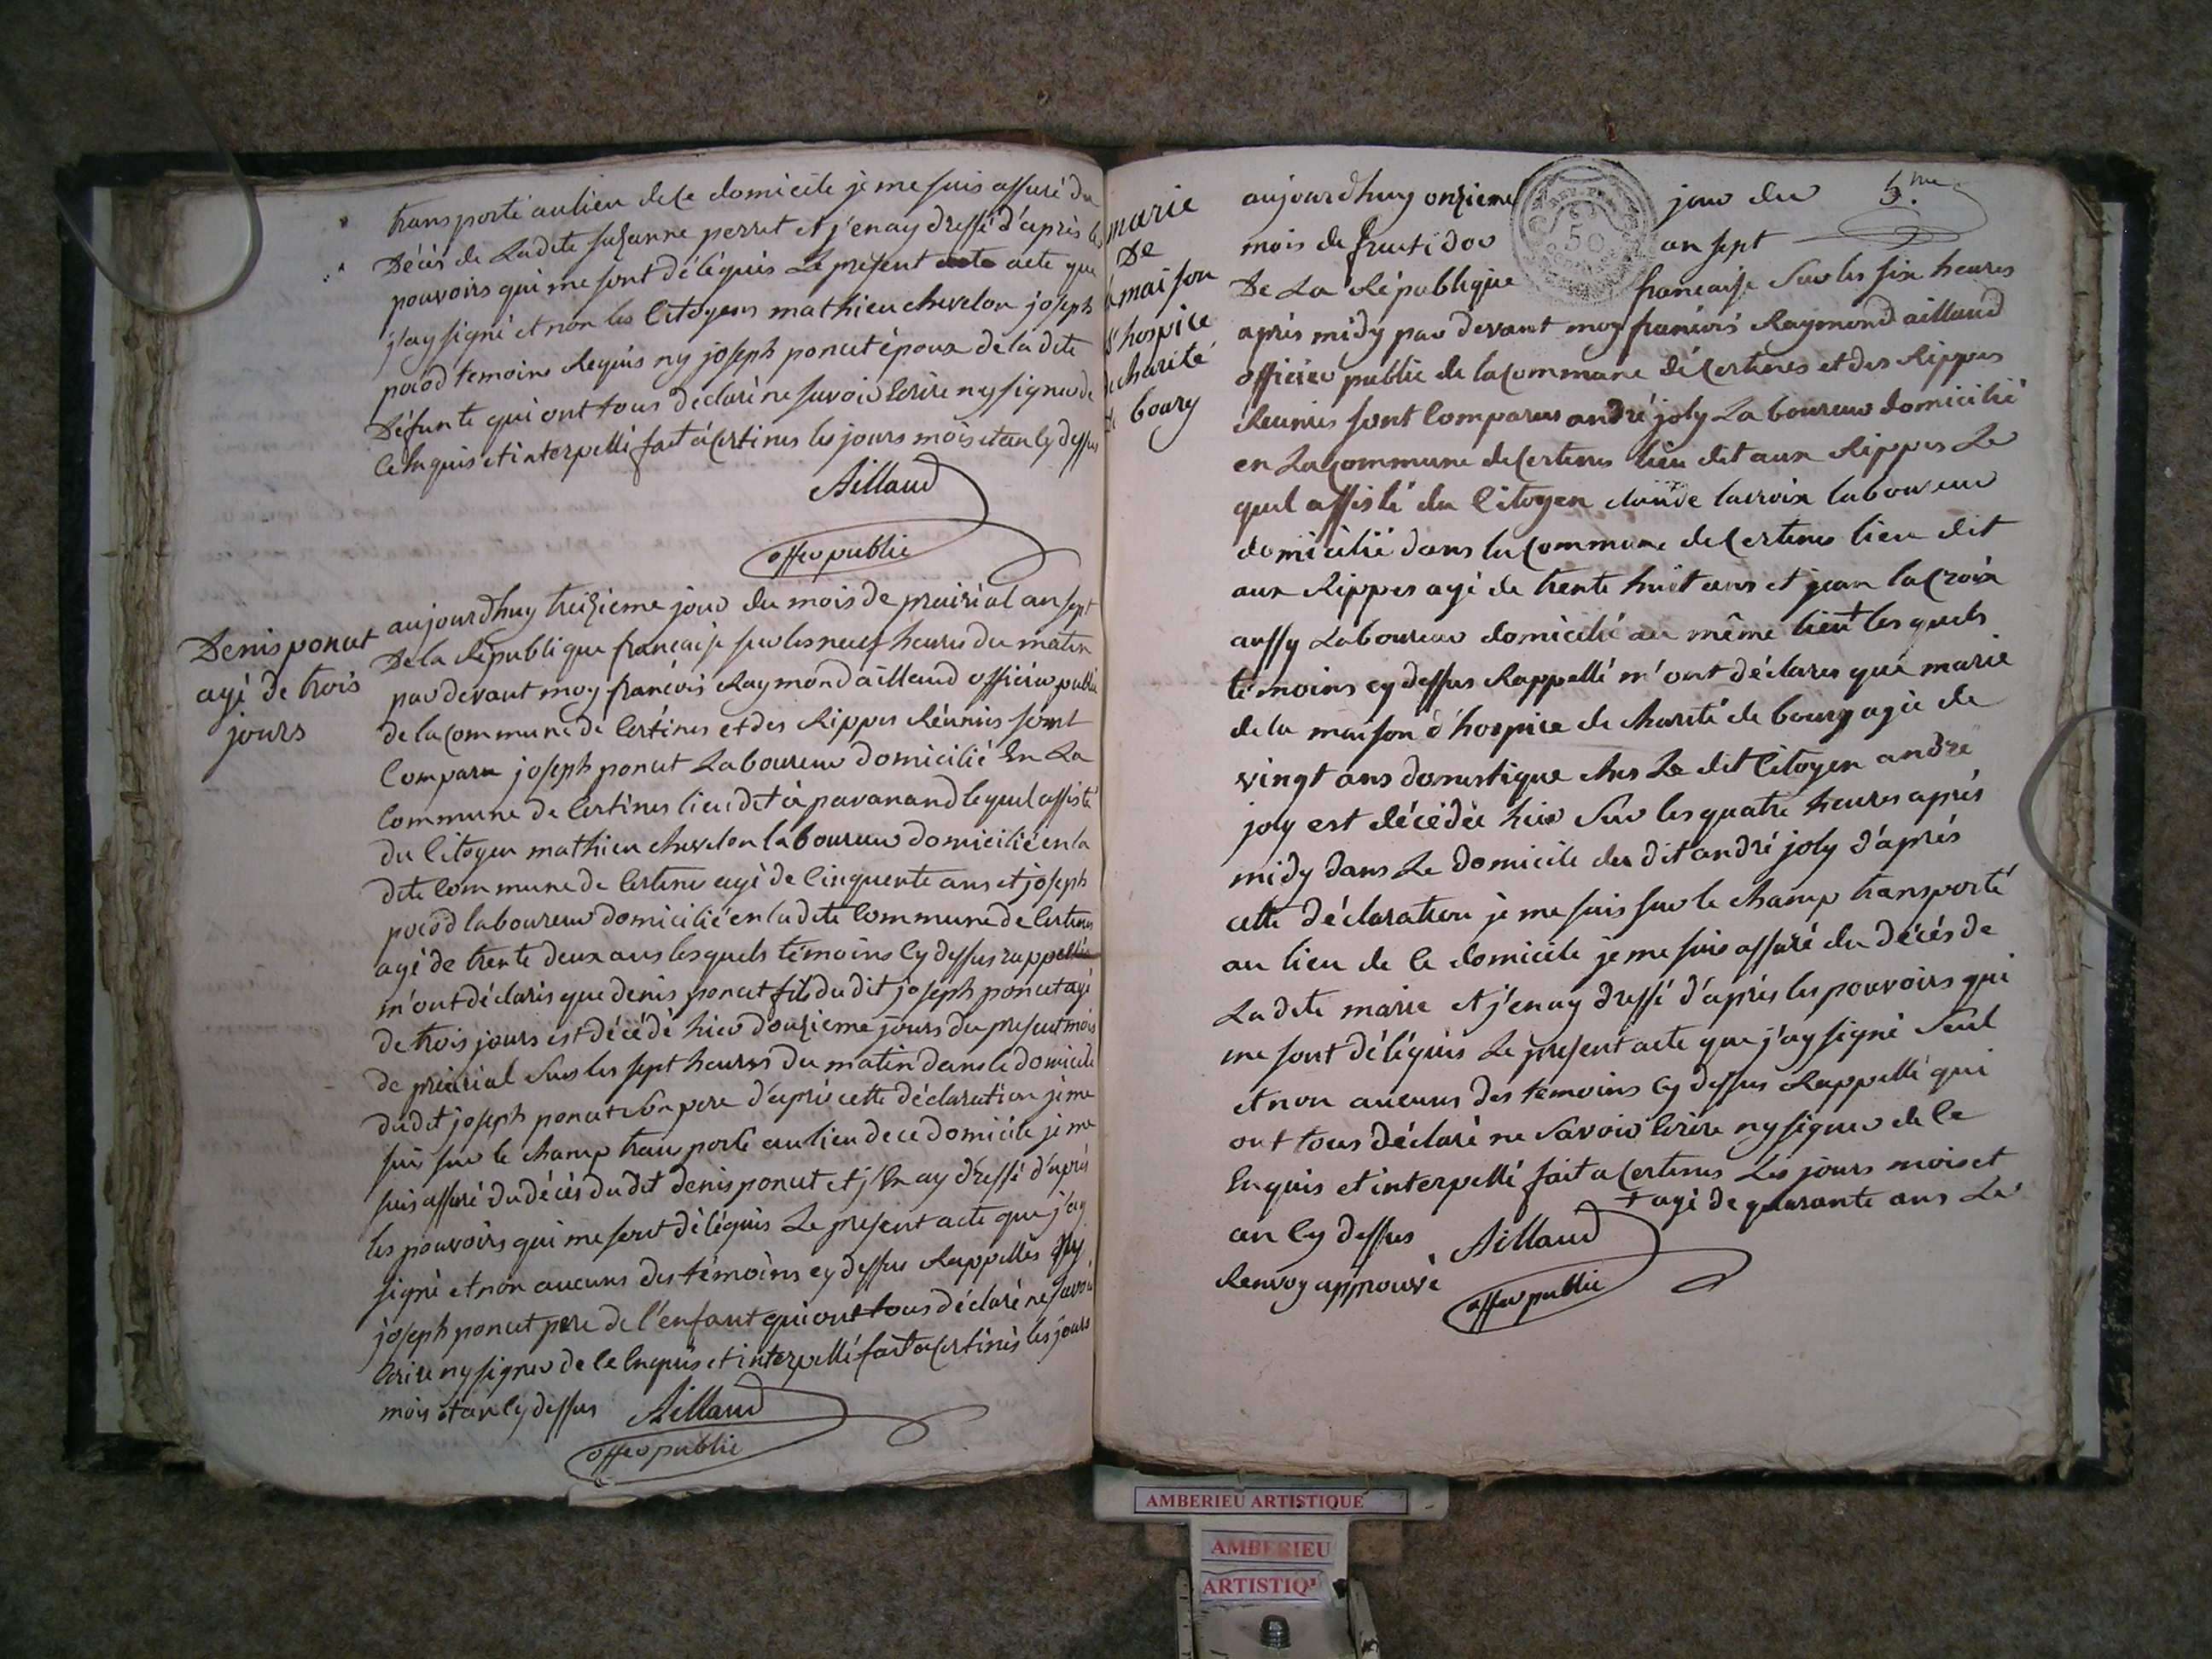 transporté au lieu de Ce domicile je me suis assuré du
Décès de Ladite suzanne perret et j'en ay dressé d'après les
pouvoirs qui me sont délégués Le présent acte que
j'ay signé et non les Citoyens mathieu chevelon joseph
pocod temoins Requis ny joseph poncet époux de la dite
Défunte qui ont tous déclaré ne savoir Ecrire ny signer de
Ce Enquis et interpellé fait à Certines les jours mois et an Cy dessus
Aillaud
offer public
Denis poncet
agé de trois
jours
aujourdhuy treizieme jour du mois de prairial an sept
De la République française sur les neuf heures du matin
par devant moy francois Raymond aillaud officier public
de la Commune de Certines et des Rippes Réunies sont
Comparu joseph poncet Laboureur domicilié En La
Commune de Certines lieu dit à pavanand lequel assisté
du Citoyen mathieu chevelon laboureur domicilié en la
dite Commune de Certines agé de Cinquente ans et joseph
pocod laboureur domicilié en la dite Commune de Certines
agé de trente deux ans lesquels témoins Cy dessus rappellés
m'ont déclarés que denis poncet fils du dit joseph poncet agé
de trois jours est décédé hier douzieme jours du present mois
de prairial sur les sept heures du matin dans le domicile
dudit joseph poncet son pere d'après cette déclaration je me
suis sur le champ transporté au lieu de ce domicile je me
suis assuré du décès du dit denis poncet et j'En ay dressé d'après
les pouvoirs qui me sont délégués Le present acte que j'ay
signé et non aucuns des témoins cy dessus Rappellés ny
joseph poncet pere de l'enfant qui ont tous déclaré ne savoir
Ecrire ny signer de Ce Enquis et interpellé fait a Certines les jours
mois et an Cy dessus Aillaud
offer public
marie
De
la maison
d'hospice
de charité
de bourg
aujourdhuy onzieme jour du 5.me
mois de fructidor an sept
De La République française Sur les six heures
après midy par devant moy francois Raymond aillaud
officier public de la Commune de Certines et des Rippes
Réunies sont Comparus andré joly Laboureur domicilié
en La Commune de Certines lieu dit aux Rippes Le
quel assisté du Citoyen claude lacroix laboureur
domicilié dans la Commune de Certines lieu dit
aux Rippes agé de trente huit ans et jean la Croix
aussy Laboureur domicilié au même lieu + les quels
témoins cy dessus Rappellé m'ont déclarés que marie
de la maison d'hospice de charité de bourg agée de
vingt ans domestique chés Le dit Citoyen andré
joly est décédée hier Sur les quatre heures après
midy dans Le domicile du dit andré joly d'après
cette déclaration je me suis sur le champ transporté
au lieu de Ce domicile je me suis assuré du décés de
La dite marie et j'en ay dressé d'après les pouvoirs qui
me sont délégués Le present acte que j'ay signé Seul
et non aucuns des temoins Cy dessus Rappellé qui
ont tous déclaré ne Savoir Ecrire ny signer de Ce
Enquis et interpellé fait a Certines Les jours mois et
an Cy dessus + agé de quarante ans Le
Renvoy approuvé Aillaud
offer public
AMBERIEU ARTISTIQUE
AMBERIEU
ARTISTIQ